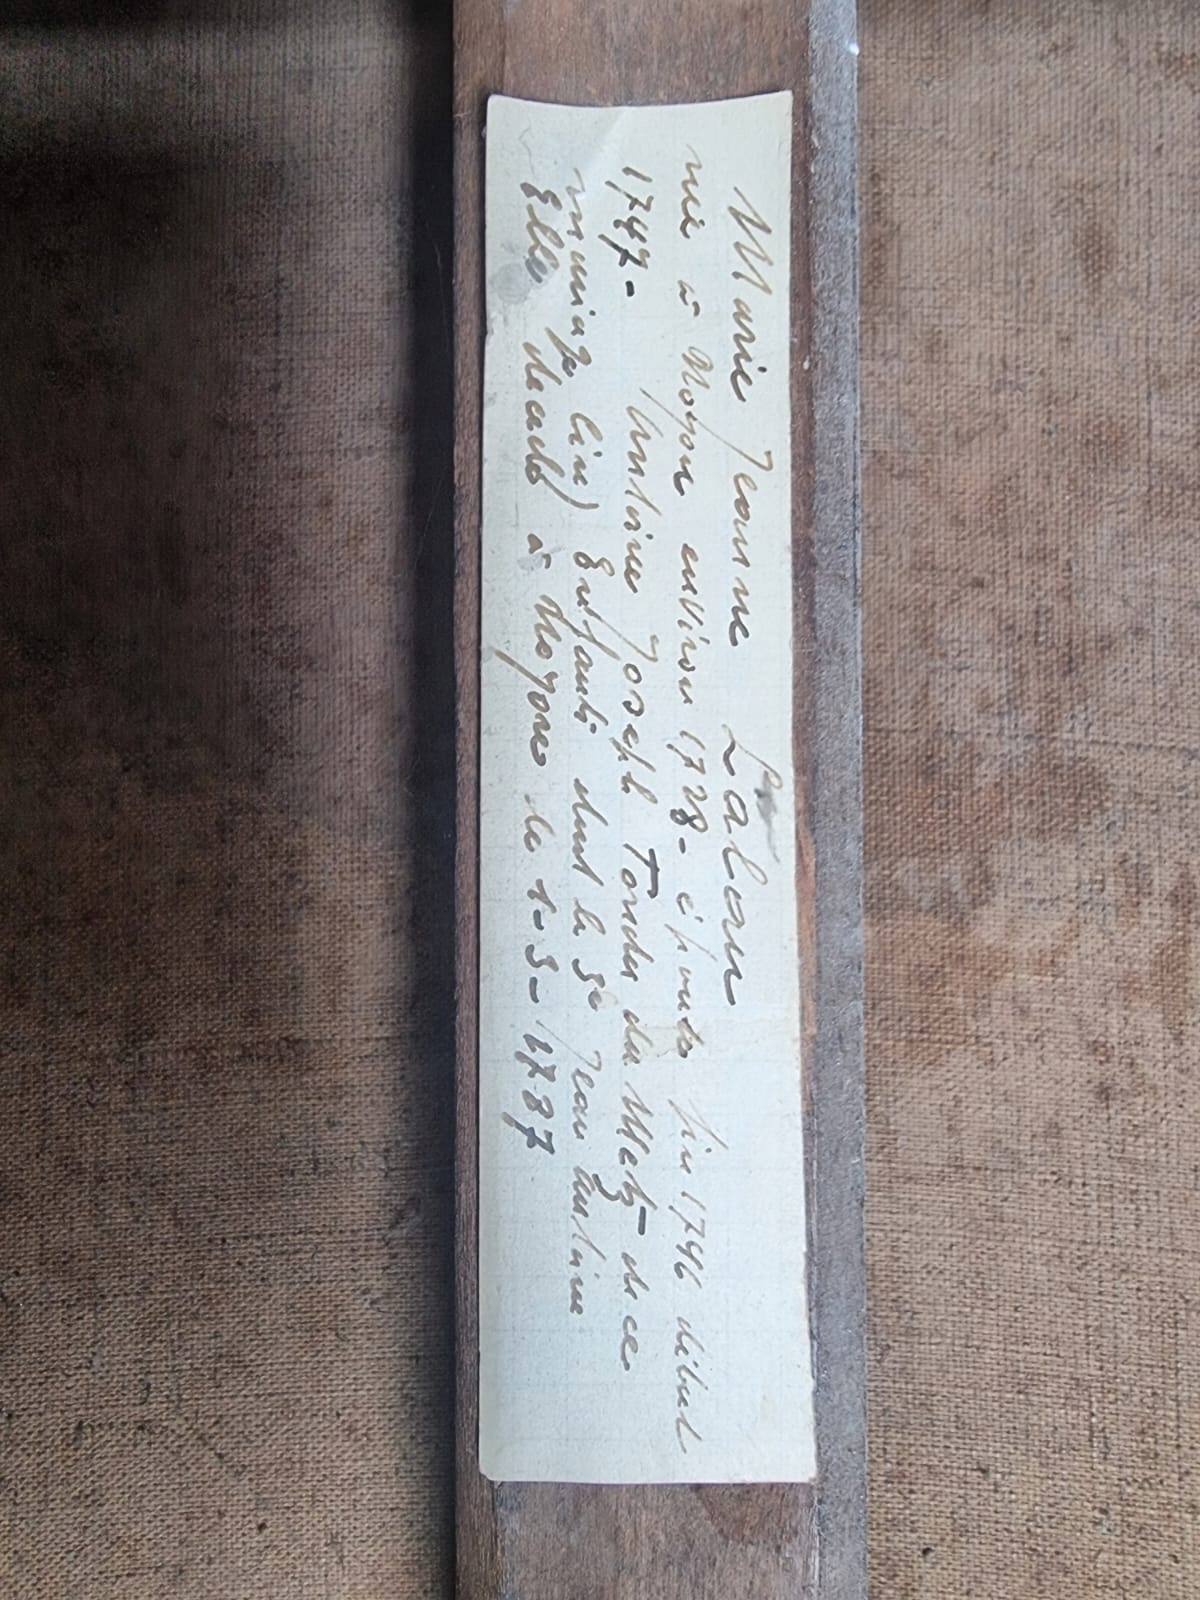 Marie Jeanne Labour
née à Noyon environ 1728 - épouse fin 1746 début
1747 - Antoine Joseph Tondu du Metz - de ce
mariage (in) Enfants dont le 3e Jean Antoine
Elle décède à Noyon le 1-3-1787